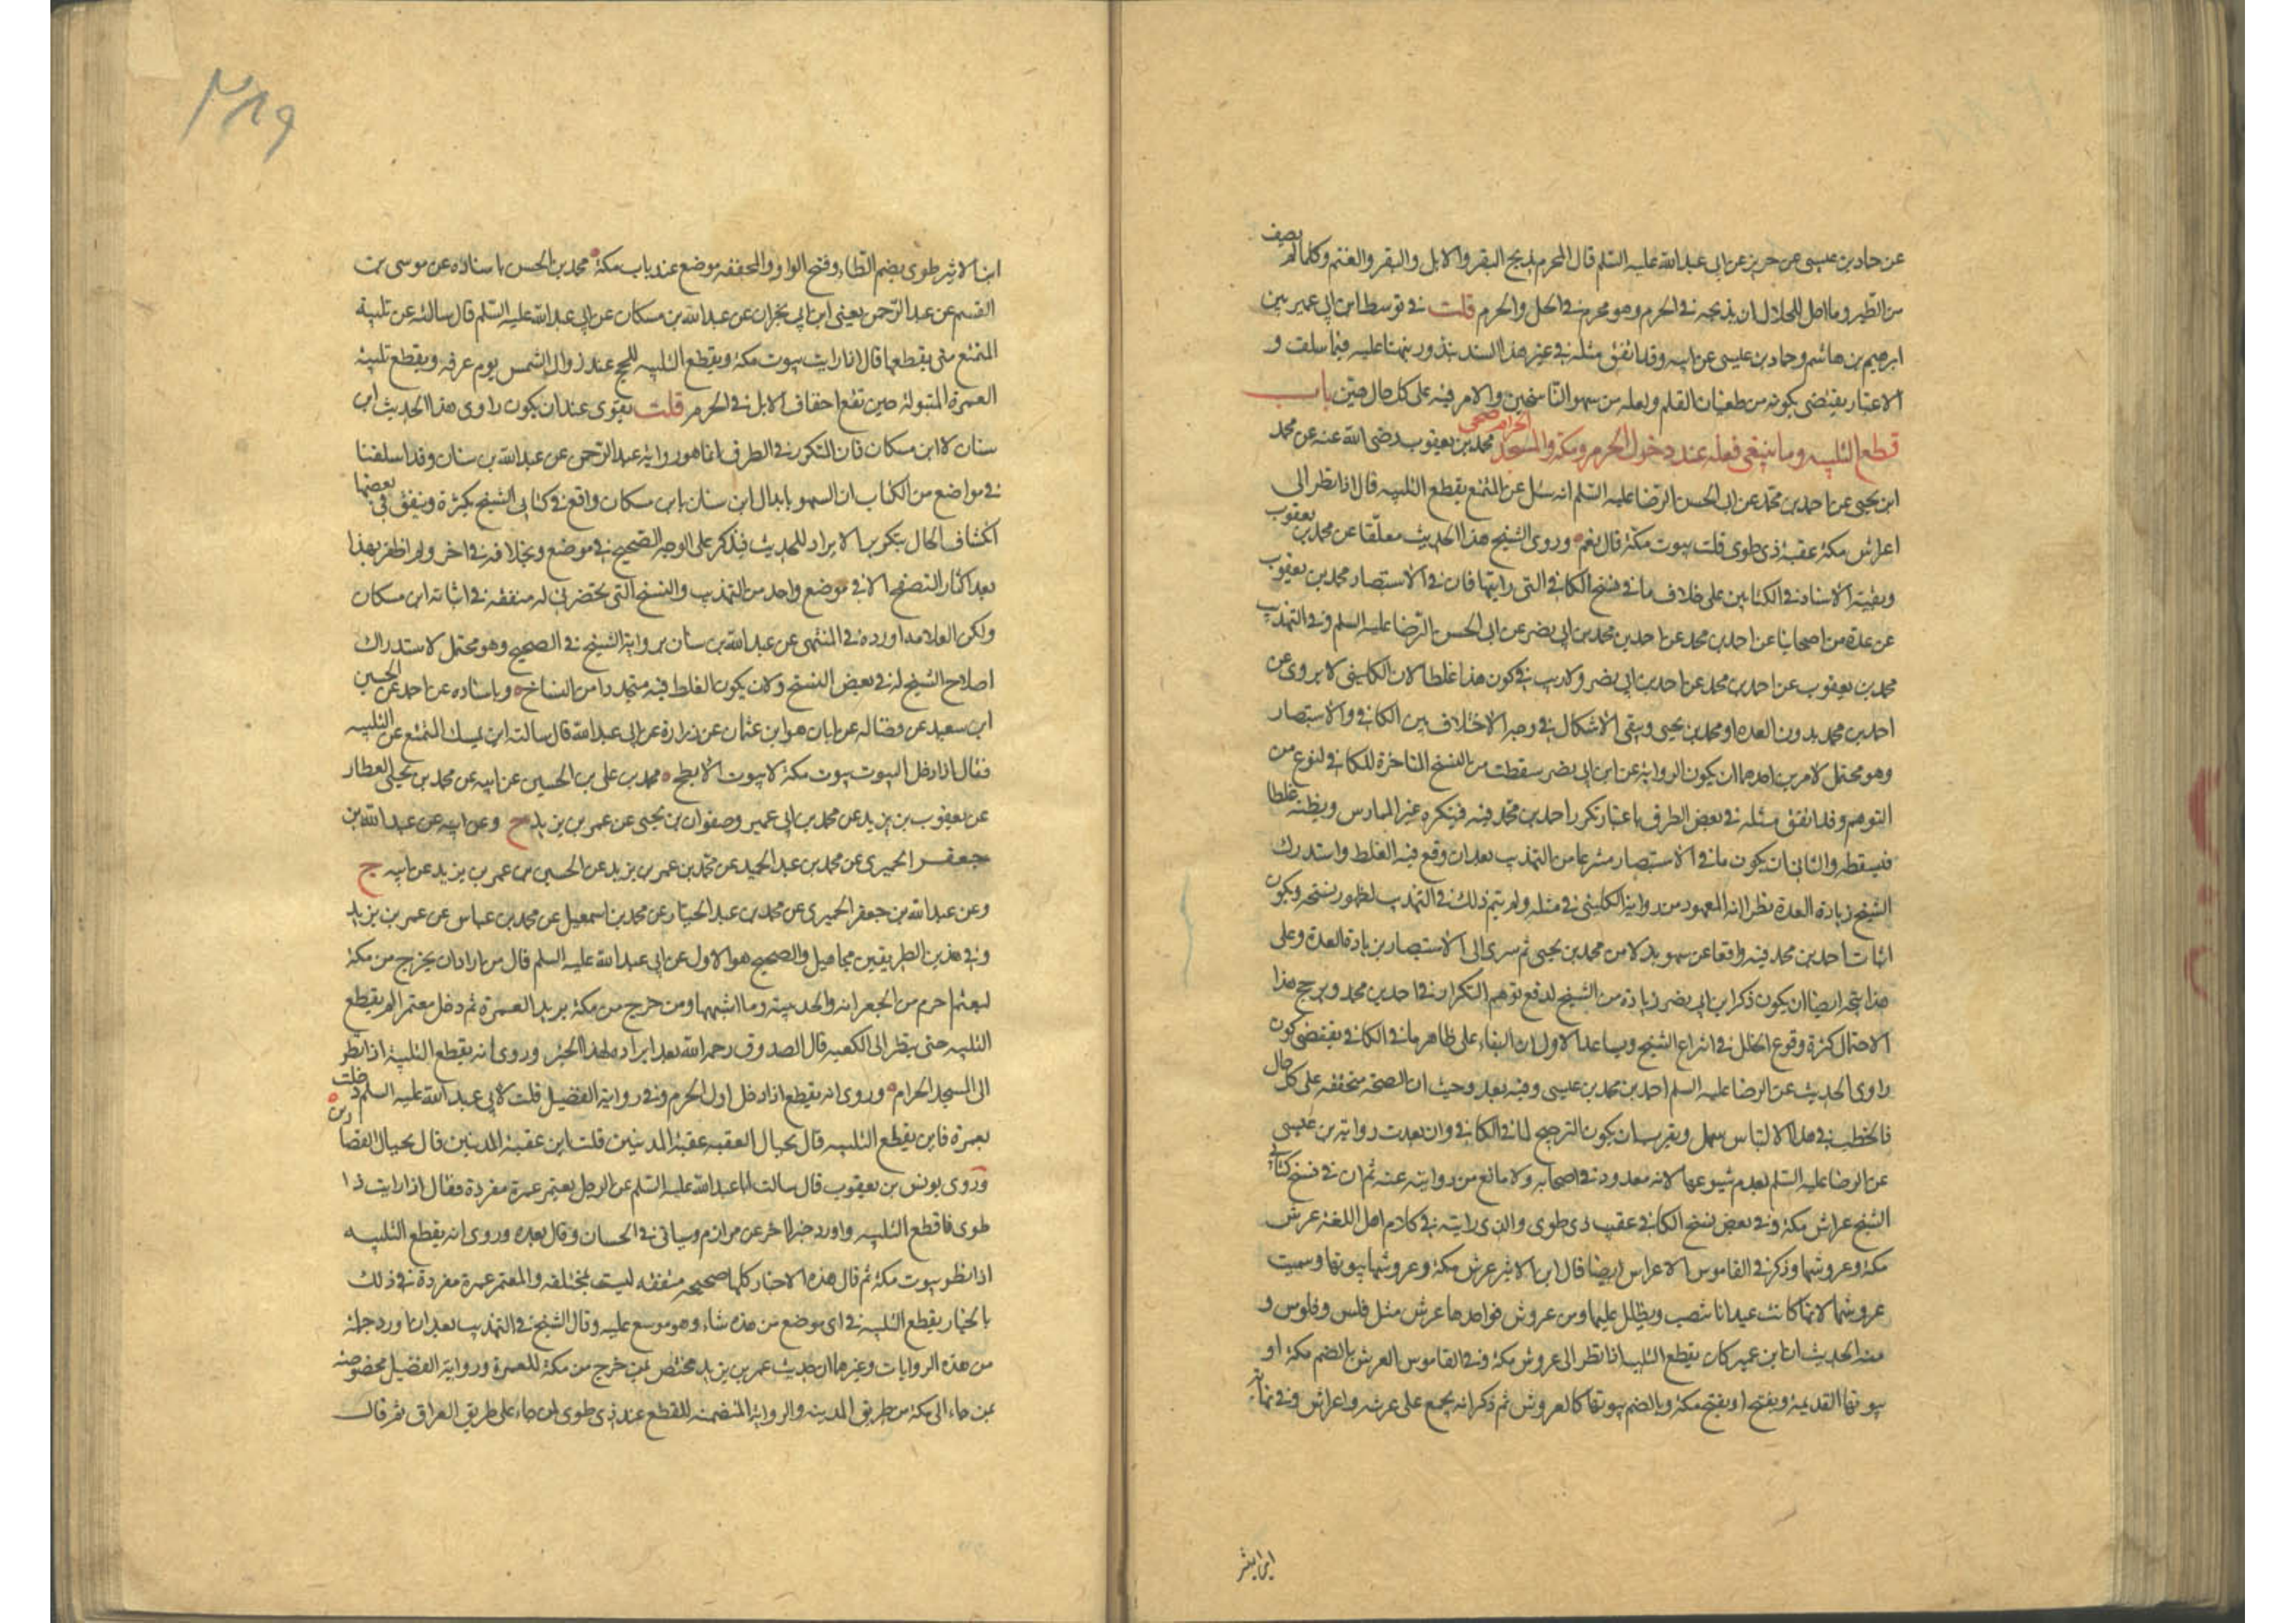 عن حماد بن عيسى عن حريز عن ابى عبد الله عليه السلم قال المحرم يذبح البقر والابل والبقر والغنم وكلما لم يصف
من الطير وما احل للحلال ان يذبحه في الحرم وهو محرم في الحل والحرم قلت في توسط ابن ابى عمير بين
ابرهيم بن هاشم وحماد بن عيسى عن ابيه وقد اتفق مثله في غير هذا السند بندور ينهنا عليه فيما سلف و
الاعتبار يقتضى بكونه من طغيان القلم ولعله من سهو الناسخين والامر فيه على كل حال هين باب
قطع التلبيه وما ينبغى فعله عند دخول الحرم ومكة والمسجد الحرام صحى محمد بن يعقوب رضى الله عنه عن محمد
ابن يحيى عن احمد بن محمد عن ابى الحسن الرضا عليه السلم انه سئل عن المتمتع يقطع التلبيه قال اذا نظر الى
اعراش مكة عقبة ذى طوى قلت بيوت مكة قال نعم وروى الشيخ هذا الحديث معلقا عن محمد بن يعقوب
وبقية الاسناد في الكتابين على خلاف ما في نسخ الكافي التى رايتها فان في الاستبصار محمد بن يعقوب
عن عدة من اصحابنا عن احمد بن محمد عن احمد بن محمد بن ابى نصر عن ابى الحسن الرضا عليه السلم وفي التهذيب
محمد بن يعقوب عن احمد بن محمد عن احمد بن ابى نصر ولا ريب في كون هذا غلطا لان الكلينى لا يروى عن
احمد بن محمد بدون العده او محمد بن يحيى ويبقى الاشكال في وجه الاختلاف بين الكافي والاستبصار
وهو محتمل لامرين احدهما ان يكون الرواية عن ابن ابى نصر سقطت من النسخ المتاخرة للكافي لنوع من
التوهم وقد اتفق مثله في بعض الطرف باعتبار تكرر احمد بن محمد فيه فينكره غير الممارس ويظنه غلطا
فيسقطه والثانى ان يكون ما في الاستبصار منتزعا من التهذيب بعد ان وقع فيه الغلط واستدرك
الشيخ زيادة العدة نظرا انه المعهود من رواية الكلينى في مثله ولم يتم ذلك في التهذيب لظهور نسخه ويكون
اثبات احمد بن محمد فيه واقعا عن سهو بدلا من محمد بن يحيى ثم سرى الى الاستبصار بزيادة العدة وعلى
هذا يتجه ايضا ان يكون ذكر ابن ابى نصر زيادة من الشيخ لدفع توهم التكرار في احمد بن محمد ويرجح هذا
الاحتمال كثرة وقوع الخلل في انتزاع الشيخ ويساعد الاول ان البناء على ظاهر ما في الكافي يقتضى كون
راوى الحديث عن الرضا عليه السلم احمد بن محمد بن عيسى وفيه بعد وحيث ان الصحه متحققه على كل حال
فالخطب في هذا الالتباس سهل ويقرب ان يكون الترجيح لما في الكافي وان بعدت رواية بن عيسى
عن الرضا عليه السلم لعدم شيوعها لانه معدود في اصحابه ولا مانع من روايته عنه ثم ان في نسخ كتابى
الشيخ عراش مكة وفي بعض نسخ الكافي عقيب ذى طوى والذى رايته في كلام اهل اللغة عرش
مكة وعروشها وذكر في القاموس الاعراش ايضا قال ابن الاثير عرش مكة وعروشها بيوتها وسميت
عروشها لانها كانت عيدانا تنصب ويظلل عليها ومن عروش فواحدها عرش مثل فلس وفلوس و
منه الحديث ان ابن عمير كان يقطع التلبيه اذا نظر الى عروش مكة وفي القاموس العرش بالضم مكة او
بيوتها القديمة ويفتح او بفتح مكة وبالضم بيوتها كالعروش ثم ذكر انه يجمع على عرش واعراش وفي نهاية
ابن الاثير
٣٨٩
ابن الاثير طوى بضم الطاء وفتح الواو والمخففه موضع عند باب مكة محمد بن الحسن باسناده عن موسى بن
القسم عن عبد الرحمن يعنى ابن ابى نجران عن عبد الله بن مسكان عن ابى عبد الله عليه السلم قال سالته عن تلبية
المتمتع متى يقطعها قال اذا رايت بيوت مكة ويقطع التلبيه للحج عند زوال الشمس يوم عرفه ويقطع تلبية
العمرة المتبولة حين تقع اخفاف الابل في الحرم قلت يقوى عند ان يكون راوى هذا الحديث ابن
سنان لا ابن مسكان فان المتكرر في الطرف انما هو رواية عبد الرحمن عن عبد الله بن سنان وقد اسلفنا
في مواضع من الكتاب ان السهو بابدال ابن سنان بابن مسكان واقع في كتابى الشيخ بكثرة ويتفق في بعضها
انكشاف الحال بتكرير الايراد للحديث فيذكر على الوجه الصحيح في موضع وبخلافه في اخر ولم اظفر بهذا
بعد اكثار التصفح الا في موضع واحد من التهذيب والنسخ التى تحضرنى له متفقه في اثباته ابن مسكان
ولكن العلامه اورده في المنتهى عن عبد الله بن سنان برواية الشيخ في الصحيح وهو محتمل لاستدراك
اصلاح الشيخ له في بعض النسخ ولان يكون الغلط فيه متجددا من النساخ وباسناده عن احمد عن الحسين
ابن سعيد عن فضاله عن ابان هو ابن عثمان عن زرارة عن ابى عبد الله قال سالته اين يمسك المتمتع عن التلبيه
فقال اذا دخل البيوت بيوت مكة لا بيوت الابطح محمد بن على بن الحسين عن ابيه عن محمد بن يحيى العطار
عن يعقوب بن يزيد عن محمد بن ابى عمير وصفوان بن يحيى عن عمر بن يزيد ح وعن ابيه عن عبد الله بن
جعفر الحميرى عن محمد بن عبد الحميد عن محمد بن عمر بن يزيد عن الحسين بن عمر بن يزيد عن ابيه ح
وعن عبد الله بن جعفر الحميرى عن محمد بن عبد الجبار عن محمد بن اسمعيل عن محمد بن عباس عن عمر بن يزيد
وفي هذين الطريقين مجاهيل والصحيح هو الاول عن ابى عبد الله عليه السلم قال من اراد ان يخرج من مكة
ليعتمر احرم من الجعرانه والحديبيه وما اشبهها ومن خرج من مكة يريد العمرة ثم دخل معتمرا لم يقطع
التلبيه حتى ينظر الى الكعبه قال الصدوق رحمه الله بعد ايراده لهذا الخبر وروى انه يقطع التلبية اذا نظر
الى المسجد الحرام وروى انه يقطع اذا دخل اول الحرم وفي رواية الفضيل قلت لابى عبد الله عليه السلم دخلت
بعمرة فاين يقطع التلبيه قال بحيال العقبه عقبة المدنيين قلت اين عقبة المدنيين قال بحيال القصارين
وروى يونس بن يعقوب قال سالت ابا عبد الله عليه السلم عن الرجل يعتمر عمرة مفردة فقال اذا رايت ذا
طوى فاقطع التلبيه واورد خبرا اخر عن مرازم وسياتى في الحسان وقال بعده وروى انه يقطع التلبيه
اذا نظر بيوت مكة ثم قال هذه الاخبار كلها صحيحه متفقه ليست بمختلفه والمعتمر عمرة مفردة في ذلك
بالخيار يقطع التلبيه في اى موضع من هذه شاء وهو موسع عليه وقال الشيخ في التهذيب بعد ان اورد جملة
من هذه الروايات وغيرها ان حديث عمر بن يزيد مختص بمن خرج من مكة للعمرة ورواية الفضيل مخصوصه
بمن جاء الى مكة من طريق المدينه والرواية المتضمنه للقطع عند ذى طوى لمن جاء على طريق العراق ثم قال